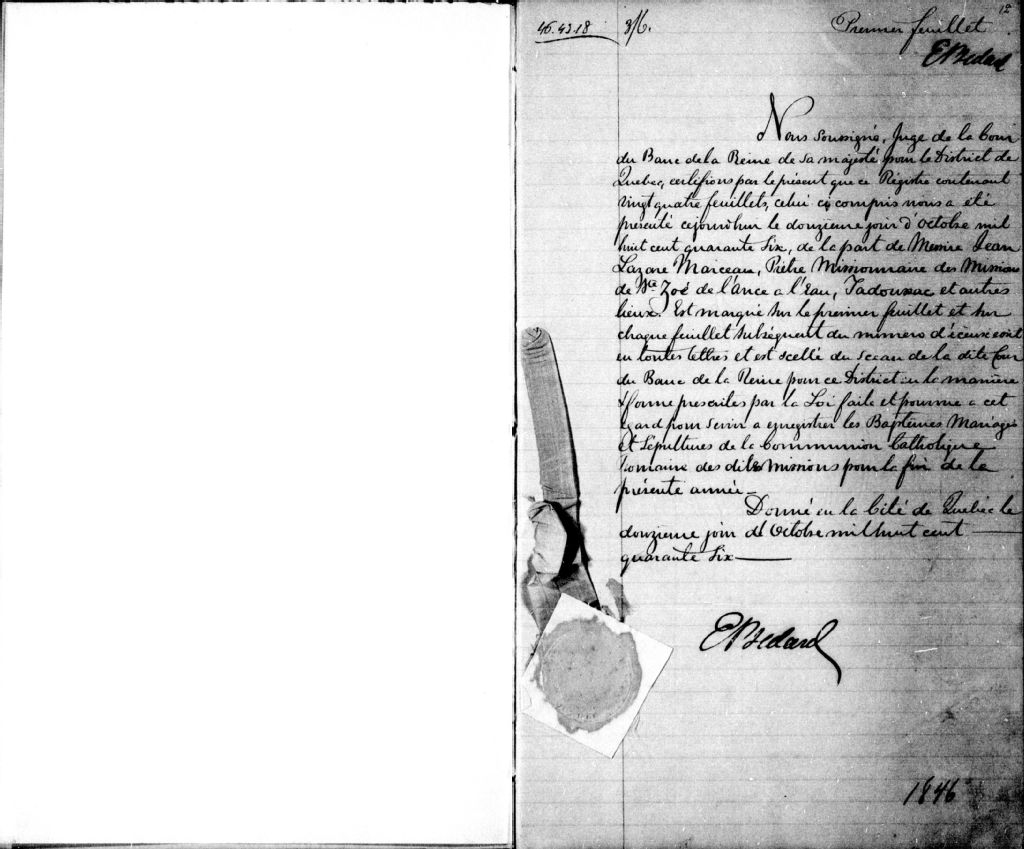 12
46.43.18 3/6. Premier feuillet
E Bedard
Nous soussigné, Juge de la Cour
du Banc de la Reine de sa majesté pour le District de
Quebec, certifions par le présent que ce Régistre contenant
vingt quatre feuillets, celui ci compris nous a été
présenté cejourd'hui le douzieme jour d'octobre mil
huit cent quarante six, de la part de Messire Jean
Lazare Marceau, Prêtre Missionnaire des Missions
de Ste Zoé de l'ance a l'Eau, Tadousac et autres
lieux. Est marqué sur le premier feuillet et sur
chaque feuillet subséquent du numero d'iceux écrit
en toutes lettres et est scellé du sceau de la dite Cour
du Banc de la Reine pour ce District en la manière
& forme prescrites par la Loi faite et pourvue a cet
egard pour servir a enregistrer les Baptêmes Mariages
et Sépultures de la Communion Catholique
Romaine des dites missions pour la fin de la
présente année_
Donné en la Cité de Quebéc le
douzieme jour d'Octobre mil huit cent —
quarante six —
E Bedard
1846